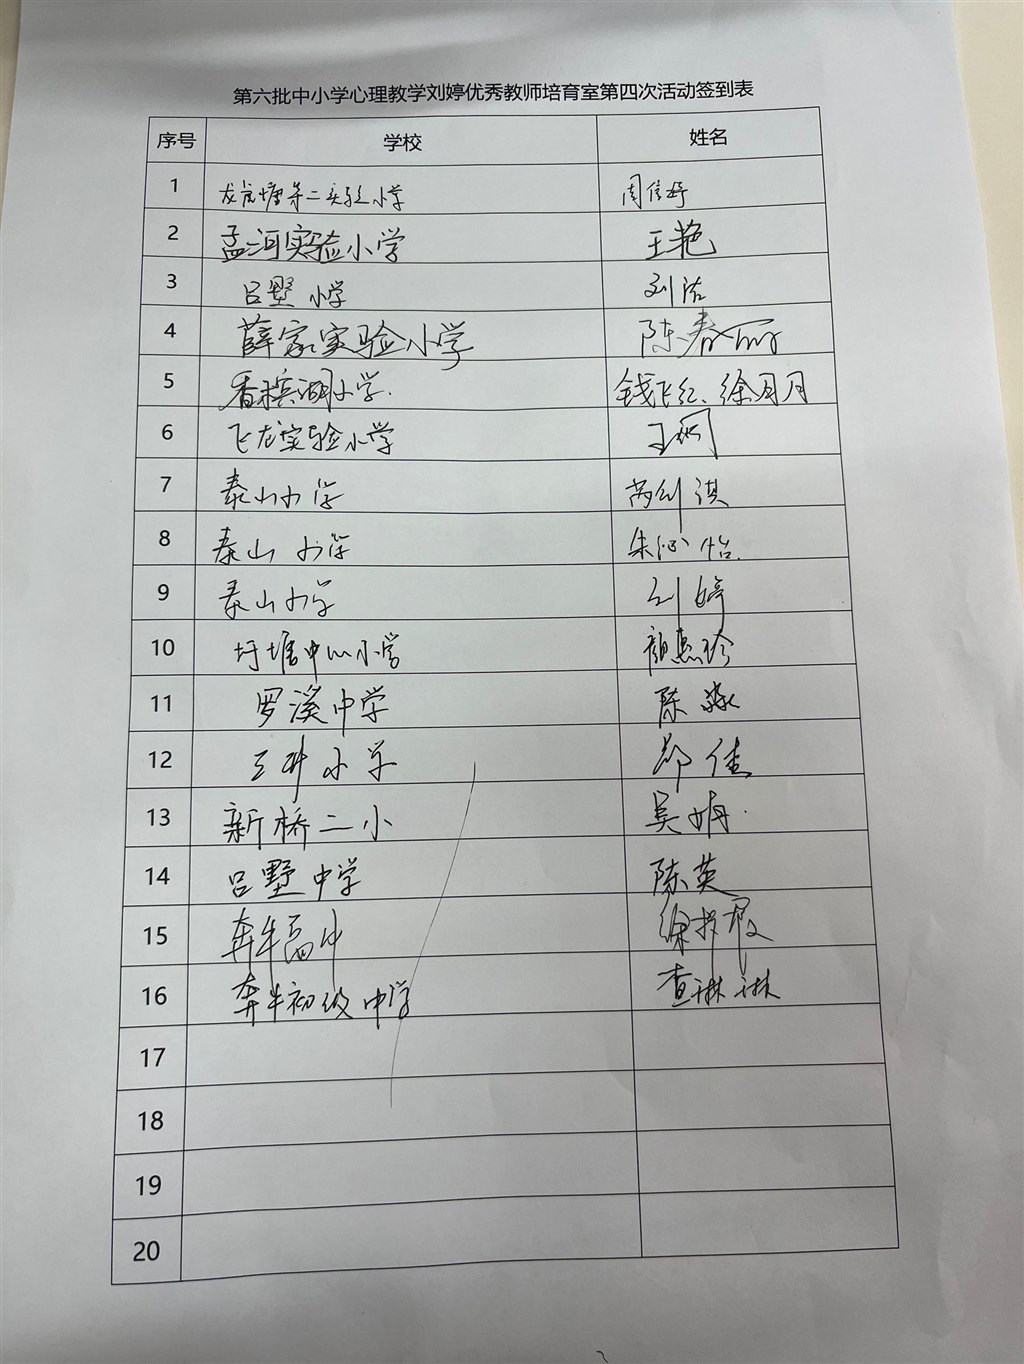 第六批中小学心理教学刘婷优秀教师培育室第四次活动签到表
序号 学校 姓名
1 龙虎塘第二实验小学 周信妤
2 孟河实验小学 王艳
3 吕墅小学 刘洁
4 薛家实验小学 陈春丽
5 香槟湖小学. 钱飞红、徐月月
6 飞龙实验小学 王炯
7 泰山小学 芮钊淇
8 泰山小学 朱沁怡.
9 泰山小学 刘婷
10 圩塘中心小学 颜惠玲
11 罗溪中学 陈
12 三井小学 郑佳
13 新桥二小 吴娟.
14 吕墅中学 陈英
15 奔牛高中 徐
16 奔牛初级中学 查琳琳
17
18
19
20